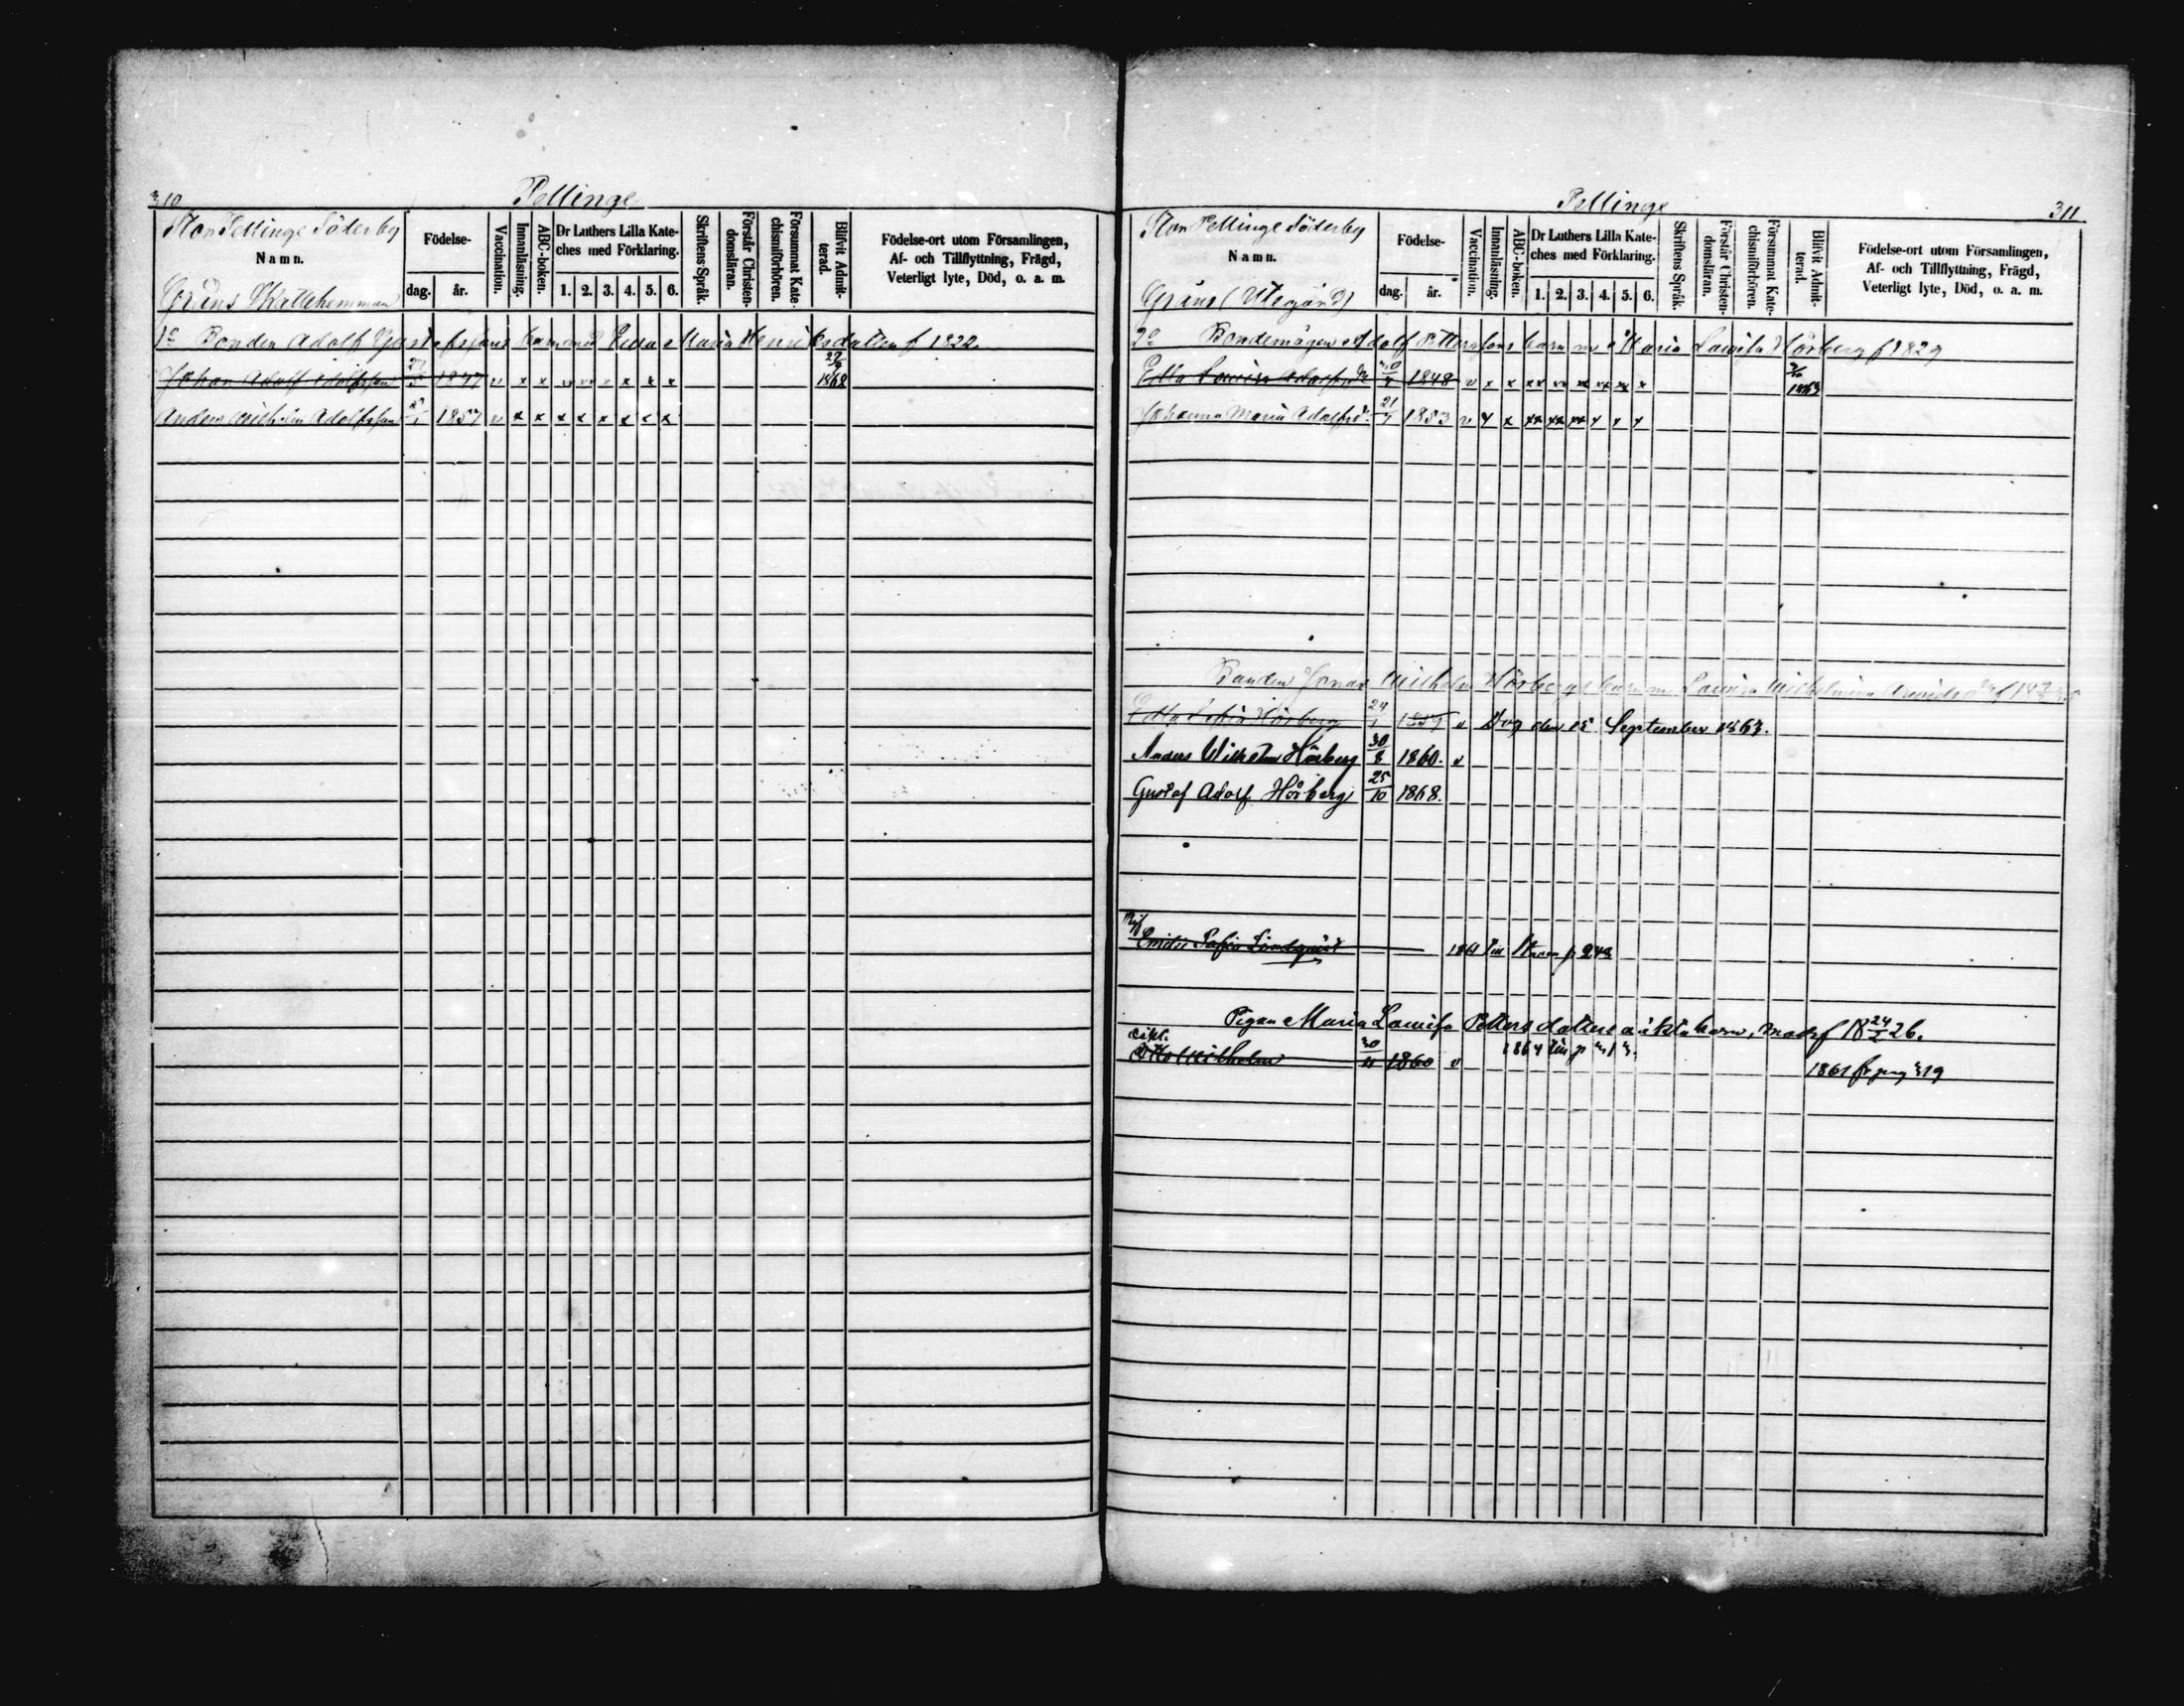 310
Pellinge
Stor Pellinge Söderby
Namn.
Gröns Skattehemman
Födelse-
dag.
år.
Vaccination.
Innanläsning.
ABC-boken.
Dr Luthers Lilla Kate-
ches med Förklaring.
1. 2. 3. 4. 5. 6.
Skriftens Språk.
Förstår Christen-
domsläran.
Försummat Kate-
chismiförhören.
Blifvit Admit-
terad.
Födelse-ort utom Församlingen,
Af- och Tillflyttning, Frägd,
Veterligt lyte, Död, o. a. m.
Bonden Adolf barn med Maria Henriksdotter f 1822.
Johan Adolf Adolfsson 1847 v x x x x x 1868
Anders Wilhelm Adolfsson 1857 v x x x x x x x x
Pellinge
311
Stor Pellinge Söderby
Namn.
Gröns (Utegård)
Födelse-
dag.
år.
Vaccination.
Innanläsning.
ABC-boken.
Dr Luthers Lilla Kate-
ches med Förklaring.
1. 2. 3. 4. 5. 6.
Skriftens Språk.
Förstår Christen-
domsläran.
Försummat Kate-
chismiförhören.
Blifvit Admit-
terad.
Födelse-ort utom Församlingen,
Af- och Tillflyttning, Frägd,
Veterligt lyte, Död, o. a. m.
2o Bondemågen Adolf Petterssons barn m Maria Lovisa Hörberg f 1829
Lovisa 1848 v x x xx xx xx xx xx x 1863
Johanna Maria 21/7 1853 v x x xx xx xx x x x
Bonden Jonas Wilhelm Hörbergs barn m Lovisa Wilhelmina
Sofia Hörberg 24/1 1857 v Dog den 15 September 1863.
Anders Wilhelm Hörberg 30/8 1860. v
Gustaf Adolf Hörberg 25/10 1868.
Sofia Lindqvist 1861 till p 243
Pigan Maria Lovisa Pettersdotters oäkta barn, modr f 18 24/2 26.
Wilhelm 1860 v 1864 till p
1861 fr pag 319